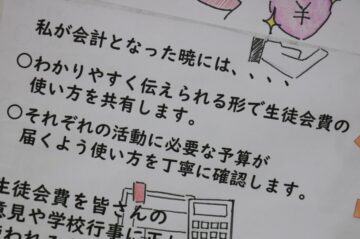 ¥
私が会計となった暁には、、、、
○わかりやすく伝えられる形で生徒会費の
使い方を共有します。
○それぞれの活動に必要な予算が
届くよう使い方を丁寧に確認します。
生徒会費を皆さんの
意見や学校行事に